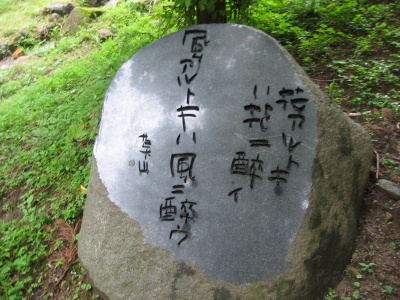 花アルトキ
ハ花ニ酔イ
風アルトキハ風ニ酔ウ
葉山